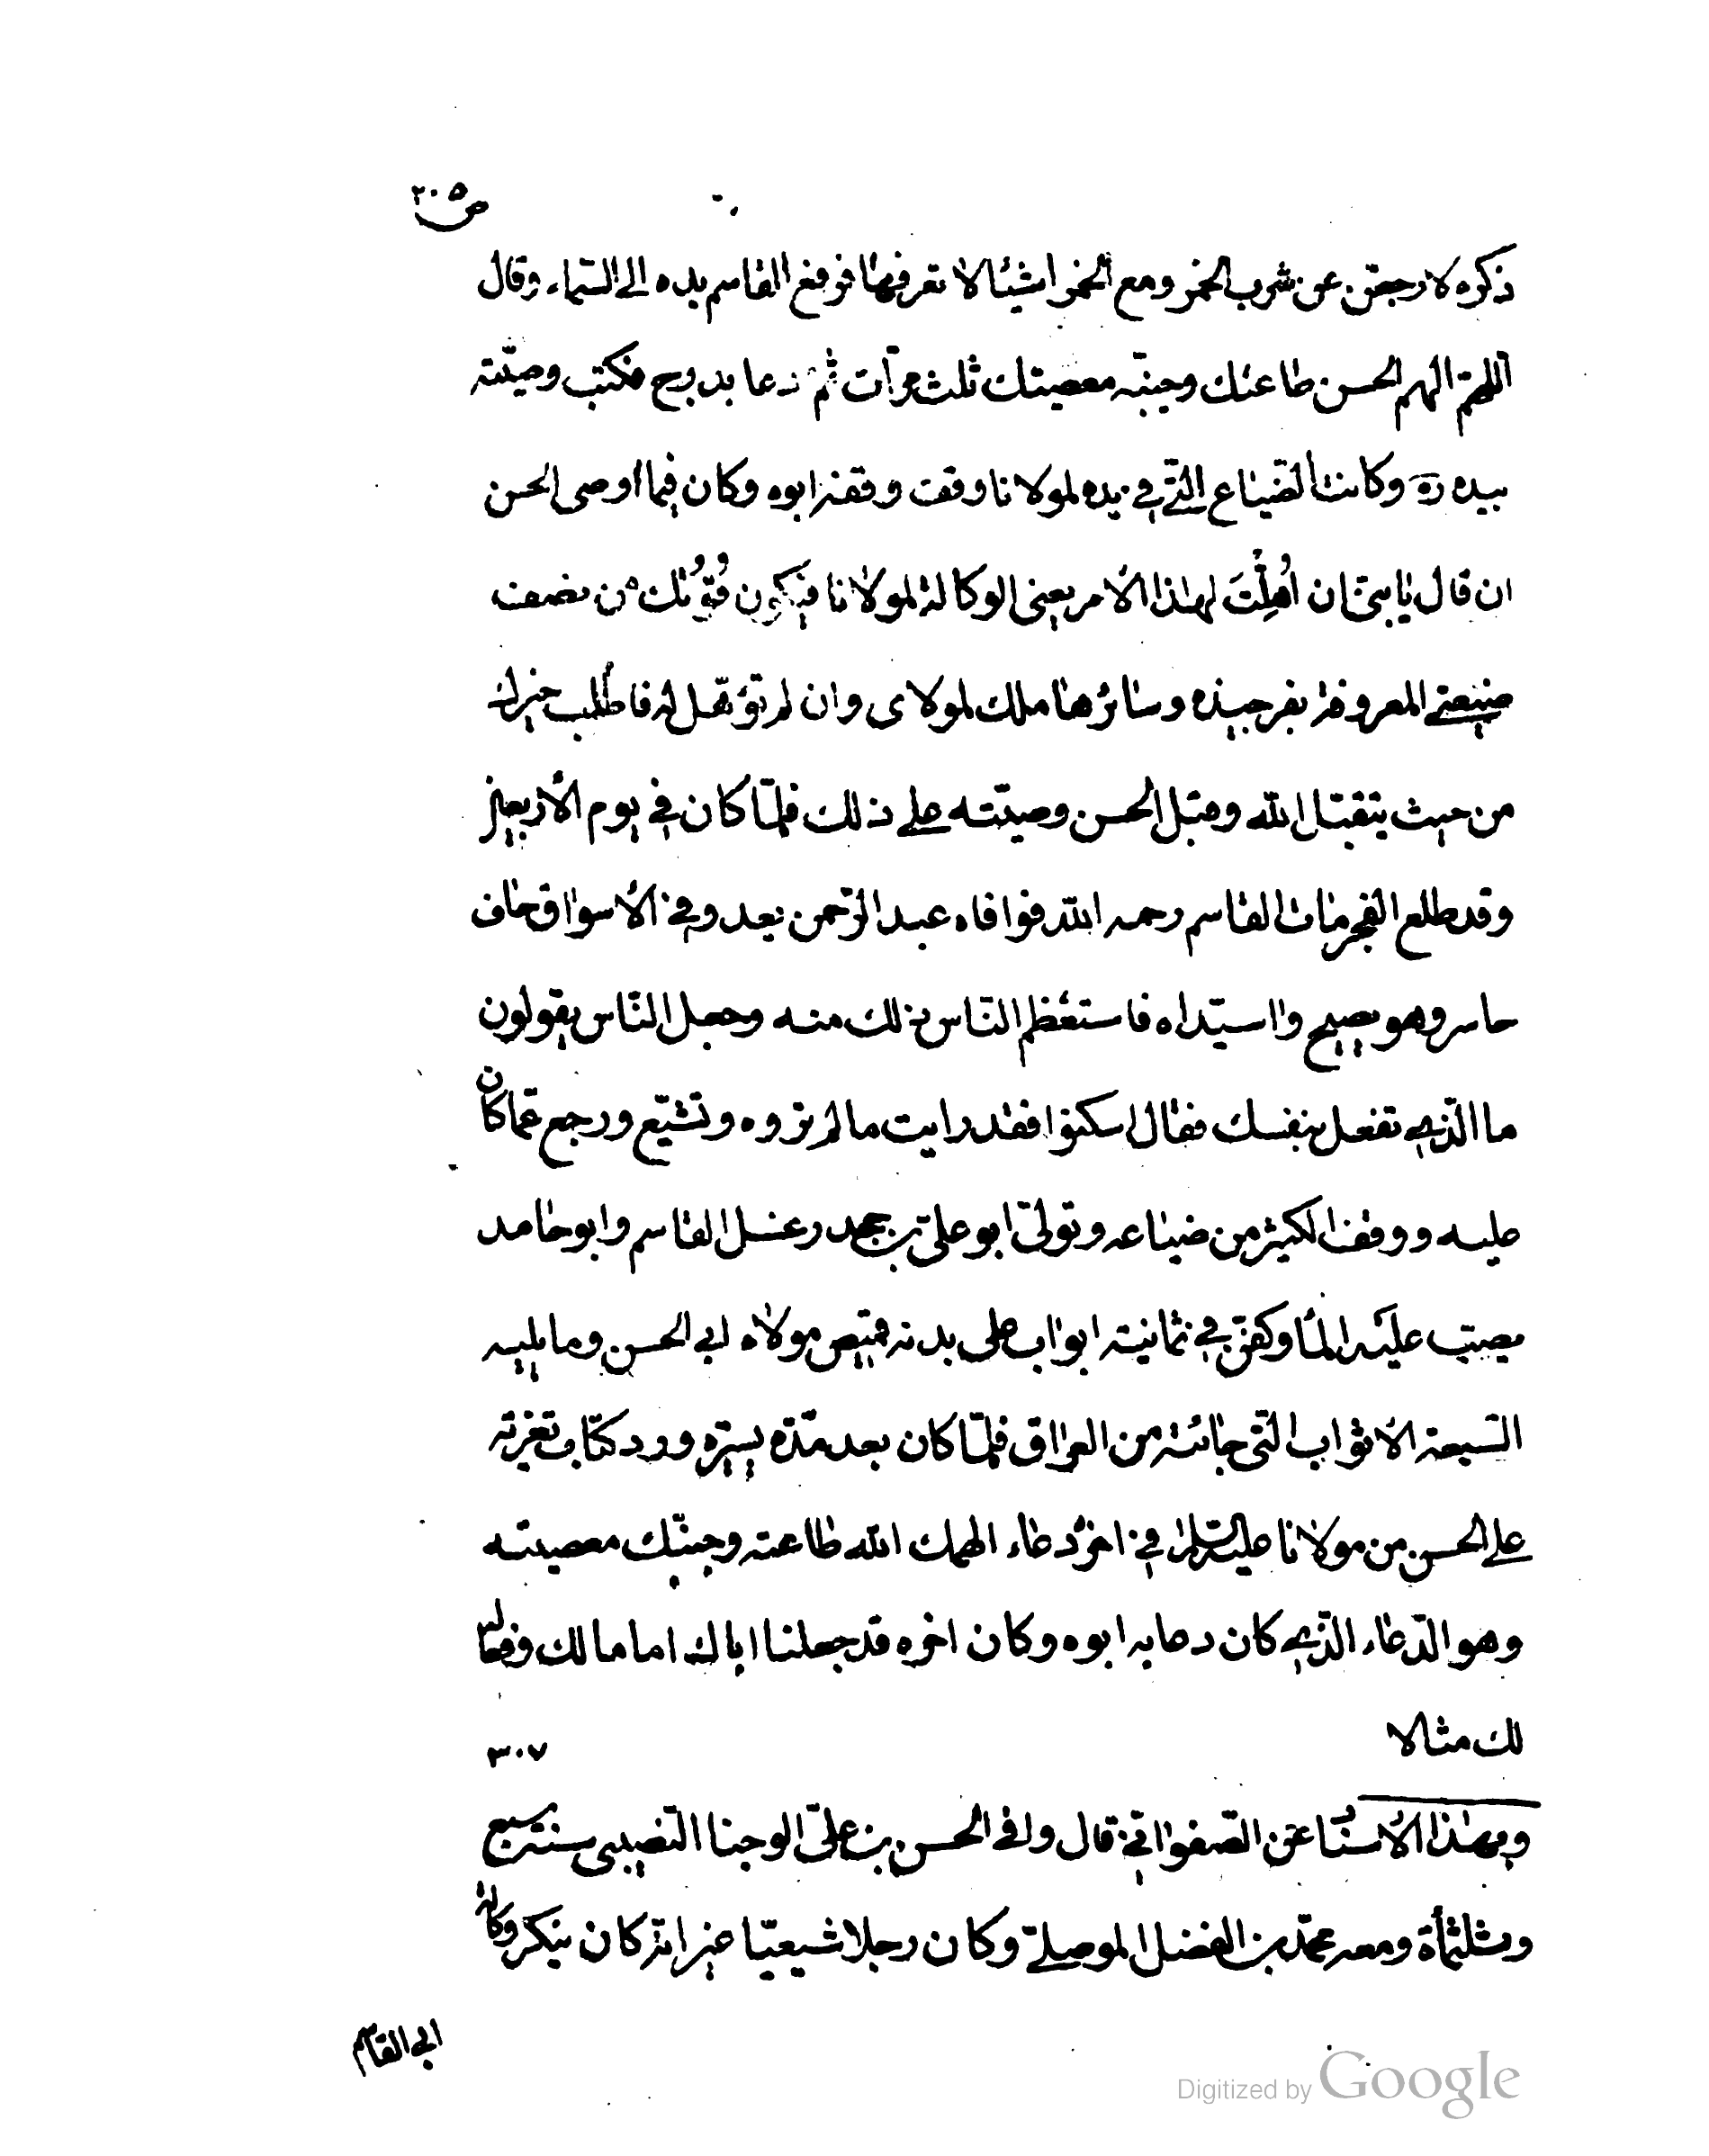 ص ٢٠٥
ذكره لارجعن عن شرب الخمر ومع الخمر اشيئا لا تعرفها فرفع القاسم يده الى السّماء وقال
اللهمّ الهم الحسن طاعتك وجنبّه معصيتك ثلث مرّات ثم دعا بدرج فكتب وصيّته
بيده ره وكانت الضّياع الّتي في يده لمولانا وقف وقفه ابوه وكان فيما اوصى الحسن
ان قال يا بنيّ ان اُهِلْتَ لهذا الأمر يعنى الوكالة لمولانا فيكون قُوتُك من نصف
ضيعتى المعروفة بفرجيذه وسائرها ملك لمولاى وان لم تؤهّل له فاطلب خيرك
من حيث يتقبّل الله وقبل الحسن وصيّته على ذلك فلمّا كان في يوم الأربعين
وقد طلع الفجر مات القاسم رحمه الله فوافاه عبد الرّحمن يعدو في الأسواق حاف
حاسر وهو يصيح وا اسيّداه فاستعظم النّاس ذلك منه وجعل النّاس يقولون
ما الّذي تفعل بنفسك فقال اسكتوا فقد رايت ما لم تروه وتشيّع ورجع عمّا كان
عليه ووقف الكثير من ضياعه وتولّى ابو علىّ بن جحدر غسل القاسم وابو حامد
يصبّ عليه الماء وكفّن في ثمانية اثواب على بدنه قميص مولاه ابي الحسن وما يليه
السّبعة الأثواب التّى جائته من العراق فلمّا كان بعد مدّة يسيرة ورد كتاب تعزية
على الحسن من مولانا عليه السّلام في اخره دعاء الهمك الله طاعته وجنّبك معصيته
وهو الدّعاء الّذي كان دعا به ابوه وكان اخره قد جعلنا اباك اماما لك وفعاله
لك مثالا ٣٠٧
وبهذا الأسناد عن الصّفوانّي قال وافى الحسن بن علىّ الوجنا النّصيبى سنة سبع
وثلثمأة ومعه محمّد بن الفضل الموصلىّ وكان رجلا شيعيّا غير انّه كان ينكر وكالة
ابي القاسم
Digitized by Google